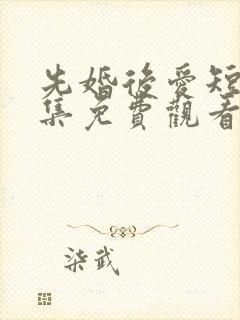 先婚後愛短
集免費觀看
柒武